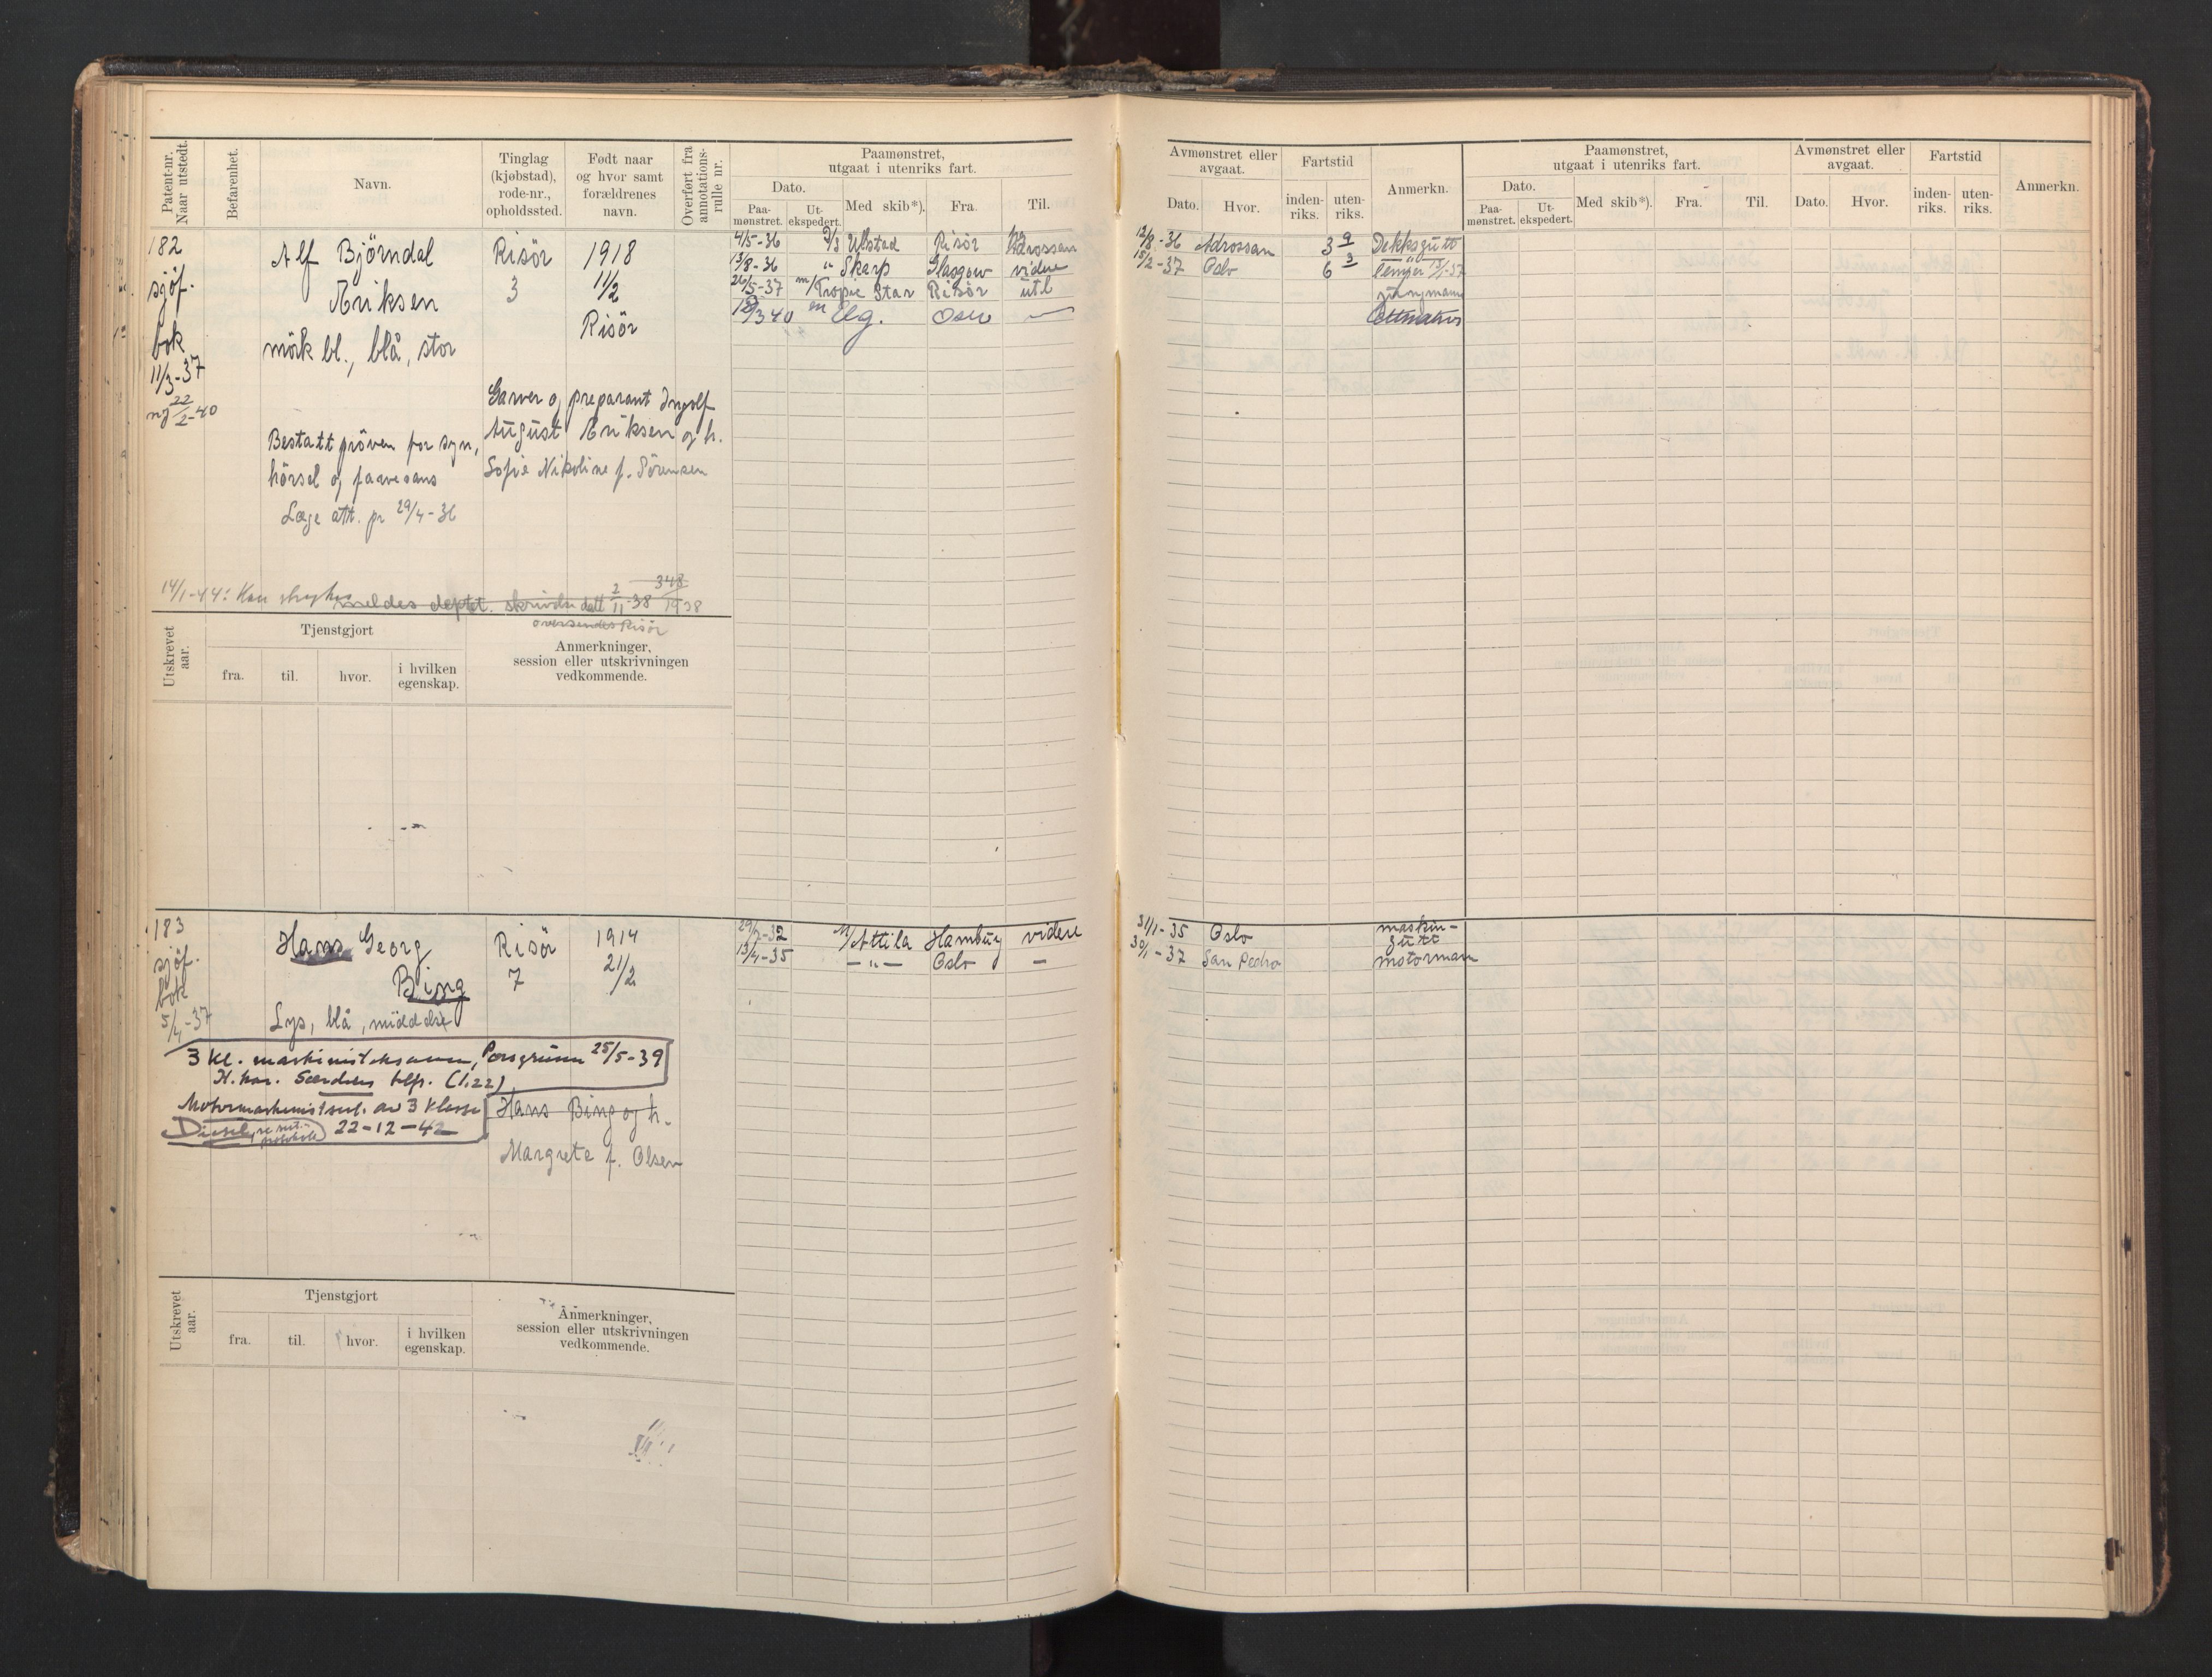 Patent-nr. Naar utstedt.
Befarenhet.
Navn.
Tinglag (kjøbstad), rode-nr., opholdssted.
Født naar og hvor samt forældrenes navn.
Overført fra annotations-rulle nr.
Paamønstret, utgaat i utenriks fart.
Dato.
Paa-mønstret.
Ut-ekspedert.
Med skib*).
Fra.
Til.
182
sjöf.
bok
11/3-37
22/2-40
Alf Björndal
Eriksen
mörk bl., blå, stor
Risör
3
1918
11/2
Risör
Garver og preparant Ingolf
August Eriksen og h.
Sofie Nikoline f. Sörensen
Bestått pröven for syn,
hörsel og farvesans
Læge att. pr 29/4-36
14/1-44: Kan strykes
meldes deptet. skrivelse datt 2/11-38 348/1938
oversendes Risör
4/5-36 Ulstad Risör Adrossan
13/8-36 " Skarp Glasgow videre
26/5-37 m/ Tropic Star Risör utl
Elg. Oslo
Utskrevet aar.
Tjenstgjort
fra.
til.
hvor.
i hvilken egenskap.
Anmerkninger, session eller utskrivningen vedkommende.
183
sjöf.
bok
5/4-37
Hans Georg
Bing
Lys, blå, middels
Risör
7
1914
21/2
3 kl. maskinisteksamen, Porsgrunn 25/5-39
H. har. Særdeles tlfr. (1.22)
Motormaskinistsert. av 3 klasse
Diesel, 22-12-42
Hans Bing og h.
Margrete f. Olsen
29/7-32 M/Attila Hamburg videre
13/4-35 — " — Oslo —
Utskrevet aar.
Tjenstgjort
fra.
til.
hvor.
i hvilken egenskap.
Anmerkninger, session eller utskrivningen vedkommende.
Avmønstret eller avgaat.
Dato.
Hvor.
Fartstid
inden-riks.
uten-riks.
Anmerkn.
Paamønstret, utgaat i utenriks fart.
Dato.
Paa-mønstret.
Ut-ekspedert.
Med skib*).
Fra.
Til.
Avmønstret eller avgaat.
Dato.
Hvor.
Fartstid
inden-riks.
uten-riks.
Anmerkn.
12/8-36 Adrossan 3 9 Dekksgutt
15/2-37 Oslo 6 3
jungmann
31/1-35 Oslo maskin-
gutt
30/1-37 San Pedro motormann